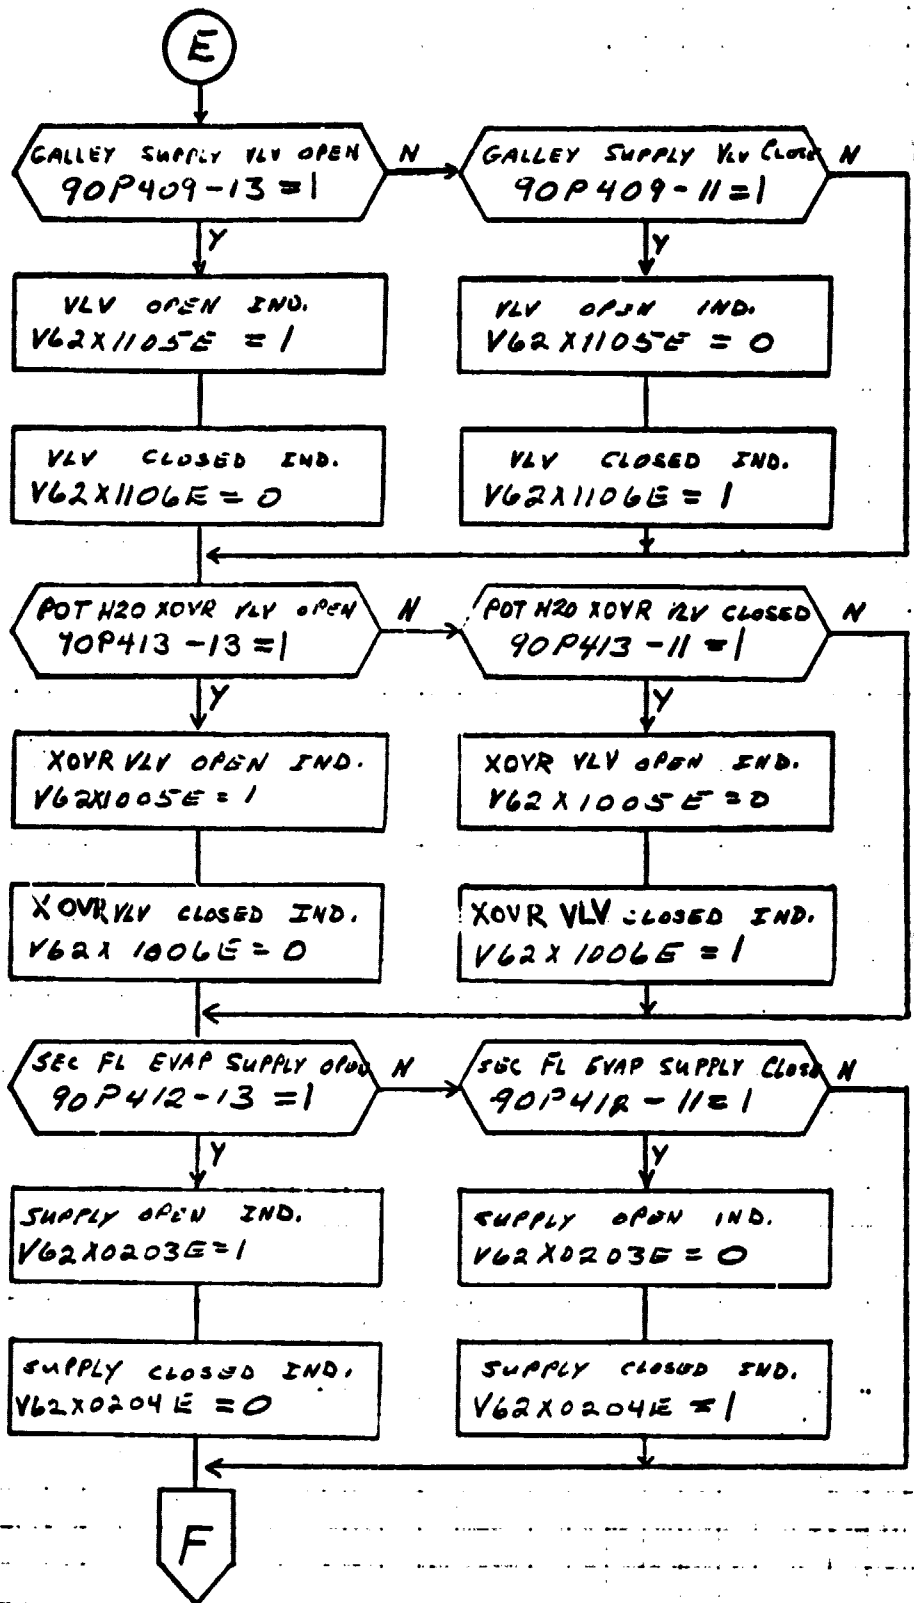 E
GALLEY SUPPLY VLV OPEN
90P409-13=1
N
GALLEY SUPPLY VLV CLOSE
90P409-11=1
N
Y
Y
VLV OPEN IND.
V62X1105E = 1
VLV OPEN IND.
V62X1105E = 0
VLV CLOSED IND.
V62X1106E = 0
VLV CLOSED IND.
V62X1106E = 1
POT H2O XOVR VLV OPEN
90P413-13=1
N
POT H2O XOVR VLV CLOSED
90P413-11=1
N
Y
Y
XOVR VLV OPEN IND.
V62X1005E=1
XOVR VLV OPEN IND.
V62X1005E=0
XOVR VLV CLOSED IND.
V62X1006E=0
XOVR VLV CLOSED IND.
V62X1006E=1
SEC FL EVAP SUPPLY OPEN
90P412-13=1
N
SEC FL EVAP SUPPLY CLOSE
90P412-11=1
N
Y
Y
SUPPLY OPEN IND.
V62X0203E=1
SUPPLY OPEN IND.
V62X0203E=0
SUPPLY CLOSED IND.
V62X0204E=0
SUPPLY CLOSED IND.
V62X0204E=1
F